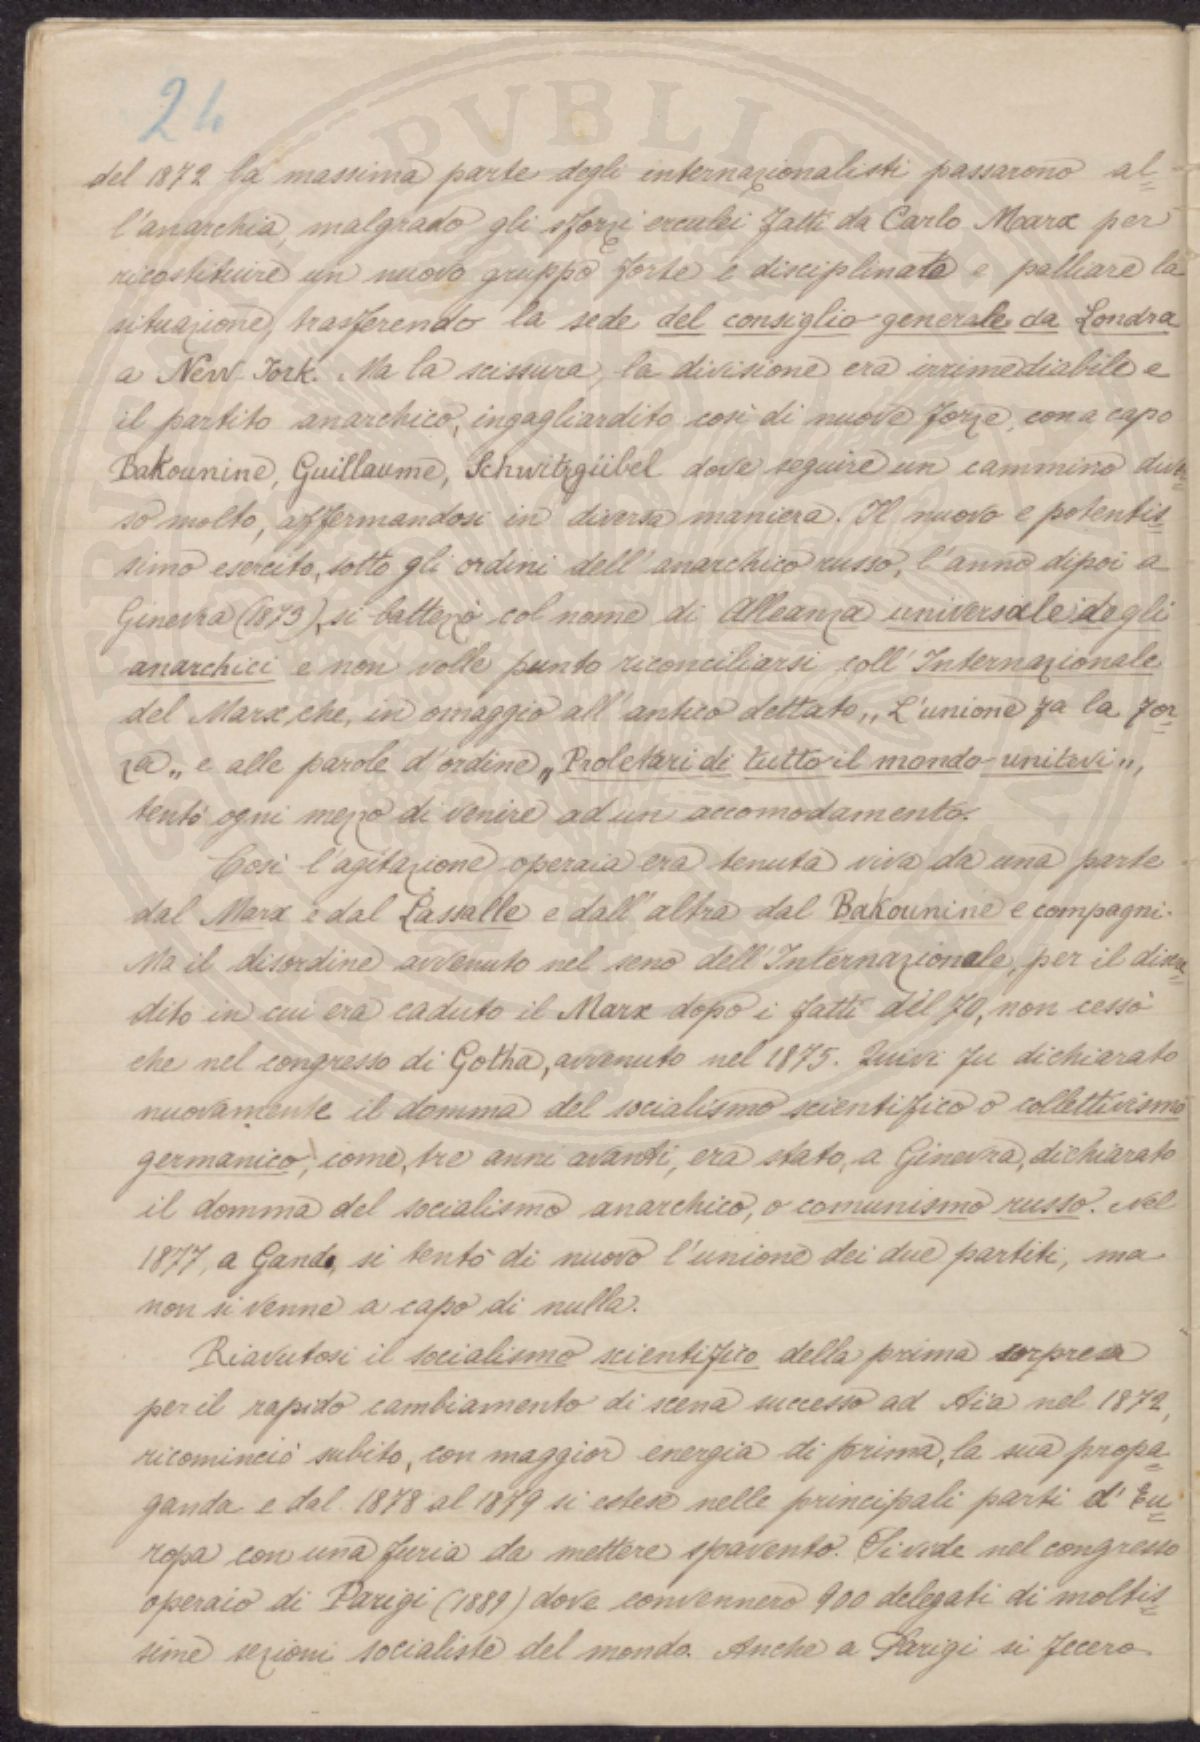 24
del 1872 la massima parte degli internazionalisti passarono al=
l'anarchia, malgrado gli sforzi erculei fatti da Carlo Marx per
ricostituire un nuovo gruppo forte e disciplinato e palliare la
situazione, trasferendo la sede del consiglio generale da Londra
a New-York. Ma la scissura, la divisione era irrimediabile e
il partito anarchico, ingagliardito così di nuove forze, con a capo
Bakounine, Guillaume, Schwitzgübel dové seguire un cammino diver=
so molto, affermandosi in diversa maniera. Il nuovo e potentis=
simo esercito, sotto gli ordini dell'anarchico russo, l'anno dipoi a
Ginevra (1873), si battezzò col nome di Alleanza universale degli
anarchici e non volle punto riconciliarsi coll'Internazionale
del Marx, che, in omaggio all'antico dettato „L'unione fa la for=
za„ e alle parole d'ordine „Proletari di tutto il mondo unitevi„,
tentò ogni mezzo di venire ad un accomodamento.
Così l'agitazione operaia era tenuta viva da una parte
dal Marx e dal Lassalle e dall'altra dal Bakounine e compagni.
Ma il disordine avvenuto nel seno dell'Internazionale, per il discre=
dito in cui era caduto il Marx dopo i fatti del 70, non cessò
che nel congresso di Gotha, avvenuto nel 1875. Quivi fu dichiarato
nuovamente il domma del socialismo scientifico o collettivismo
germanico, come, tre anni avanti, era stato, a Ginevra, dichiarato
il domma del socialismo anarchico, o comunismo russo. Nel
1877, a Gand, si tentò di nuovo l'unione dei due partiti, ma
non si venne a capo di nulla.
Riavutosi il socialismo scientifico della prima sorpresa
per il rapido cambiamento di scena successo ad Aia nel 1872,
ricominciò subito, con maggior energia di prima, la sua propa=
ganda e dal 1878 al 1879 si estese nelle principali parti d'Eu=
ropa con una furia da mettere spavento. Si vide nel congresso
operaio di Parigi (1889) dove convennero 900 delegati di moltis=
sime sezioni socialiste del mondo. Anche a Parigi si fecero